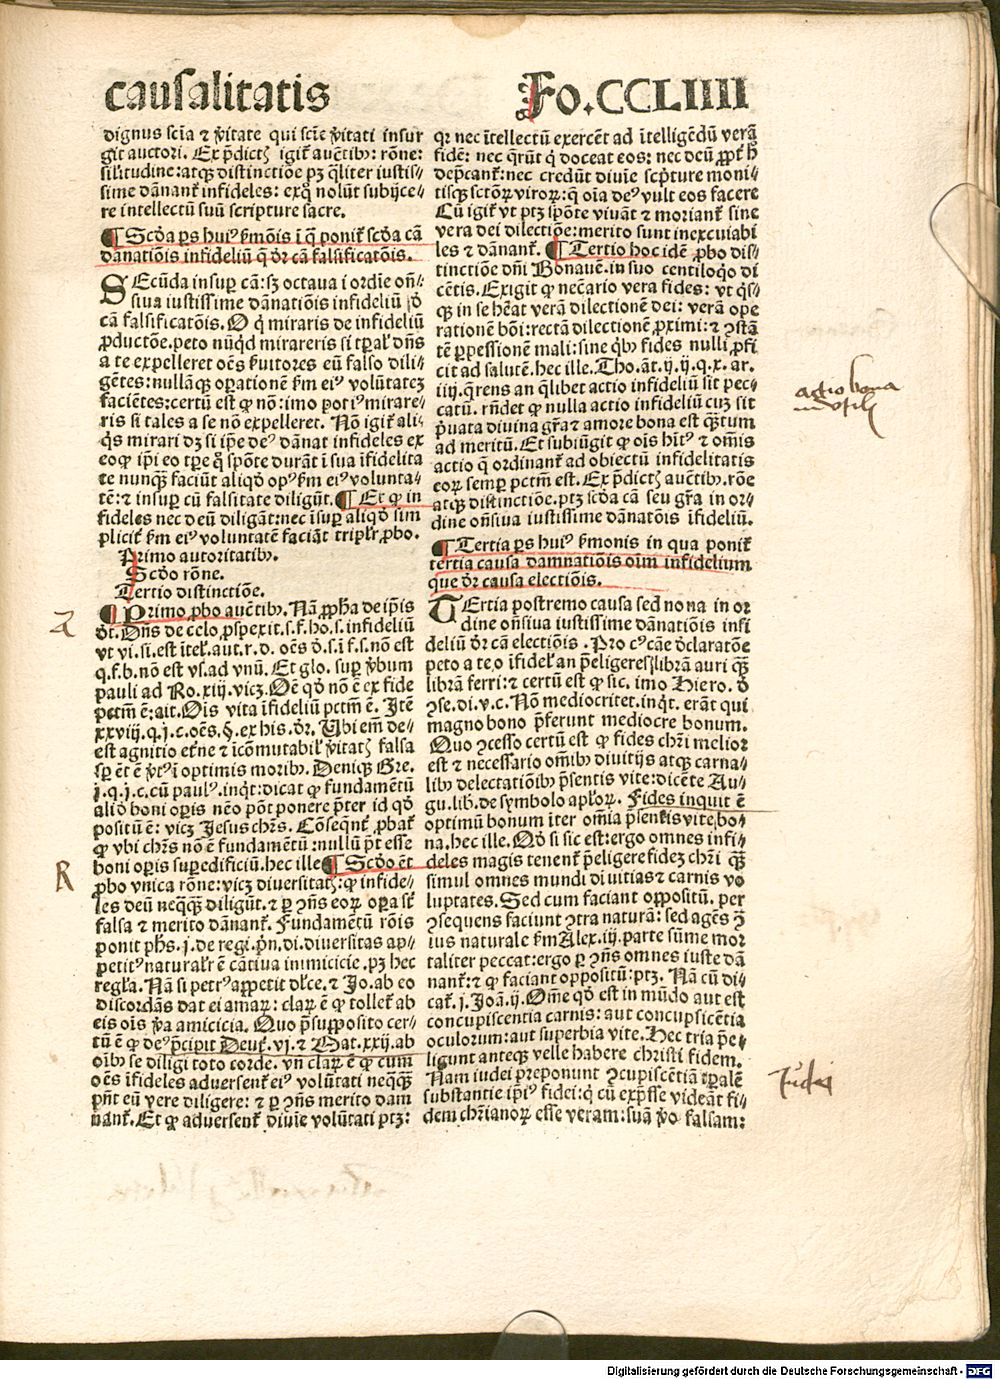 causalitatis
Fo.CCLIIII
dignus scīa ⁊ v̄itate qui scīe v̄itati insur
git auctori. Ex p̄dictꝭ igit᷑ auc̄tibꝰ: rōne:
silitudine: atqꝫ distinctiōe pꝫ q̄liter iustis⸗
sime dānant᷑ infideles: exq̄ nolūt subijce⸗
re intellectū suū scripture sacre.
¶ Scd̓a ps huiꝰ ẜmōis ī q̄ ponit᷑ scd̓a cā
dānatiōis infideliū q̄ dr̄ cā falsificatōis.
SEcūda insuꝑ cā: sꝫ octaua ī ordīe oñ⸗
siua iustissime dānatiōis infideliū d̓r
cā falsificatōis. O q̇ miraris de infideliū
ꝓductōe. peto nūqd̓ mirareris si tꝑal̓ dn̄s
a te expelleret oēs ẜuitores eū falso dili⸗
gētes: nullāqꝫ oꝑationē ẜm eiꝰ volūtatez
faciētes: certū est ꝙ nō: imo pot iꝰ mirare⸗
ris si tales a se nō expelleret. Nō igit᷑ ali⸗
q̇s mirari dꝫ si ip̄e deꝰ dānat infideles ex
eoꝙ ip̄i eo tꝑe q̇ spōte durāt ī sua īfidelita
te nunqꝫ faciūt aliqd̓ opꝰ ẜm eiꝰ volunta⸗
tē: ⁊ insuꝑ cū falsitate diligūt. ¶ Et ꝙ in
fideles nec deū diligāt: nec īsuꝑ aliqd̓ sim
plicit᷑ ẜm eiꝰ voluntatē faciāt tripl̓r ꝓbo.
Primo autoritatibꝰ.
Scd̓o rōne.
Tertio distinctiōe.
¶ Primo ꝓbo auc̄tibꝰ. Nā ꝓph̄a de ip̄is
dt. Dn̄s de celo ꝓspexit. s. f. ho. s. infideliū
vt vi. si. est ītel̓. aut. r. d. oēs d̄. s. i f. s. nō est
q. f. b. nō est vs. ad vnū. Et glo. suꝑ v̄bum
pauli ad Ro. xiij. vicꝫ. Oē qd̓ nō ē ex fide
pctm̄ ē: ait. Oīs vita īfideliū pctm̄ ē. Itē
xxviij. q. j. c. oēs. §. ex his. dr̄. Ubi em̄ de⸗
est agnitio etn̄e ⁊ īcōmutabil̓ v̄itatꝭ falsa
falsa ⁊ merito dānant᷑. Fundamētū rōis
ponit ph̄s. j. de regi. pn̄. di. diuersitas ap⸗
petitꝰ naturalr̄ ē cātiua inimicicie. pꝫ hec
regl̓a. Nā si petrꝰ appetit dl̓ce. ⁊ Jo. ab eo
discordās dat ei amaꝝ: claꝝ ē ꝙ tollet᷑ ab
eis oīs v̄a amicicia. Quo p̄supposito cer⸗
tū ē ꝙ deꝰ p̄cipit Deut̓. vj. ⁊ Mat. xxij. ab
oībꝰ se diligi toto corde. vn̄ claꝝ ē ꝙ cum
oēs īfideles aduersent᷑ eiꝰ volūtati neqꝗꝫ
pn̄t eū vere diligere: ⁊ ꝑ ꝯn̄s merito dam
nant᷑. Et ꝙ aduersent᷑ diuīe volūtati ptꝫ:
qꝛ nec ītellectū exercēt ad ītelligēdū verā
fidē: nec q̄rūt q̇ doceat eos: nec deū ꝓpt᷑ h̄
dep̄cant᷑: nec credūt diuīe scp̄ture moni⸗
tisqꝫ sctōꝝ viroꝝ: q̇ oīa deꝰ vult eos facere
Cū igit᷑ vt ptꝫ spōte viuāt ⁊ moriant᷑ sine
vera dei dilectiōe: merito sunt inexcuiabi
les ⁊ dānant᷑. ¶ Tertio hoc idē ꝓbo dis⸗
tinctiōe dn̄i Bonauē. in suo centiloqo di
cētis. Exigit ꝙ nec̄ario vera fides: vt q̇s⸗
qꝫ in se hēat verā dilectionē dei: verā ope
rationē bōi: rectā dilectionē ꝓximi: ⁊ ꝯstā
tē ꝑpessionē mali: sine q̇bꝰ fides nulli ꝓfi
cit ad salutē. hec ille. Tho. āt. ij. ij. q. x. ar.
iiij. q̄rens an q̄libet actio infideliū sit pec⸗
catū. rn̄det ꝙ nulla actio infideliū cuꝫ sit
p̄uata diuina gr̄a ⁊ amore bona est qꝫtum
ad meritū. Et subiūgit ꝙ oīs hīt ⁊ om̄is
actio q̄ ordinant᷑ ad obiectū infidelitatis
eoꝝ semꝑ pctm̄ est. Ex p̄dictꝭ auc̄tibꝰ. rōe
atqꝫ distinctiōe. ptꝫ scd̓a cā seu gr̄a in or⸗
dine oñsiua iustissime dānatōis īfideliū.
¶ Tertia ps huiꝰ ẜmonis in qua ponit᷑
tertia causa damnatiōis oīm infidelium
que dr̄ causa electiōis.
TErtia postremo causa sed nona in or
dine oñsiua iustissime dānatiōis infi
deliū dr̄ cā electiōis. Pro cꝰ cāe d̓claratōe
peto a te, o īfidel̓ an p̄eligeres librā auri qꝫ
librā ferri: ⁊ certū est ꝙ sic. imo Hiero. d̓
ꝯse. di. v. c. Nō mediocriter. inqt̓. erāt qui
magno bono p̄ferunt mediocre bonum.
Quo ꝯcesso certū est ꝙ fides chr̄i melior
est ⁊ necessario om̄ibꝰ diuitijs atqꝫ carna⸗
libꝰ delectatiōibꝰ p̄sentis vite: dicēte Au⸗
gu. lib. de symbolo apl̓oꝝ. Fides inquit ē
optimū bonum īter om̄ia p̄sentis vite bo⸗
na. hec ille. Qd̓ si sic est: ergo omnes infi⸗
deles magis tenent᷑ p̄eligere fideꝫ chr̄i qꝫ
simul omnes mundi diuitias ⁊ carnis vo
luptates. Sed cum faciant oppositū. per
ꝯsequens faciunt ꝯtra naturā: sed agēs ꝯ̄
ius naturale ẜm Alex. iij. parte sūme mor
taliter peccat: ergo ꝑ ꝯn̄s omnes iuste dā
nant᷑: ⁊ ꝙ faciant oppositū: ptꝫ. Nā cū di⸗
cat᷑. j. Joā. ij. Om̄e qd̓ est in mūdo aut est
concupiscentia carnis: aut concupiscētia
oculorum: aut superbia vite. Hec tria p̄e⸗
ligunt anteqꝫ velle habere christi fidem.
Nam iudei preponunt ꝯcupiscētiā tꝑalē
substantie ip̄iꝰ fidei: q̇ cū exp̄sse videāt fi⸗
dem chr̄ianoꝝ esse veram: suā v̄o falsam:
actio bona
Judei
Digitalisierung gefördert durch die Deutsche Forschungsgemeinschaft - DFG